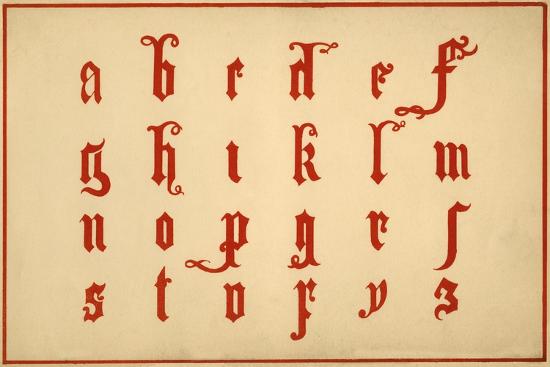 a b c d e f
g h ı k l m
n o p q r ſ
s t v x y z